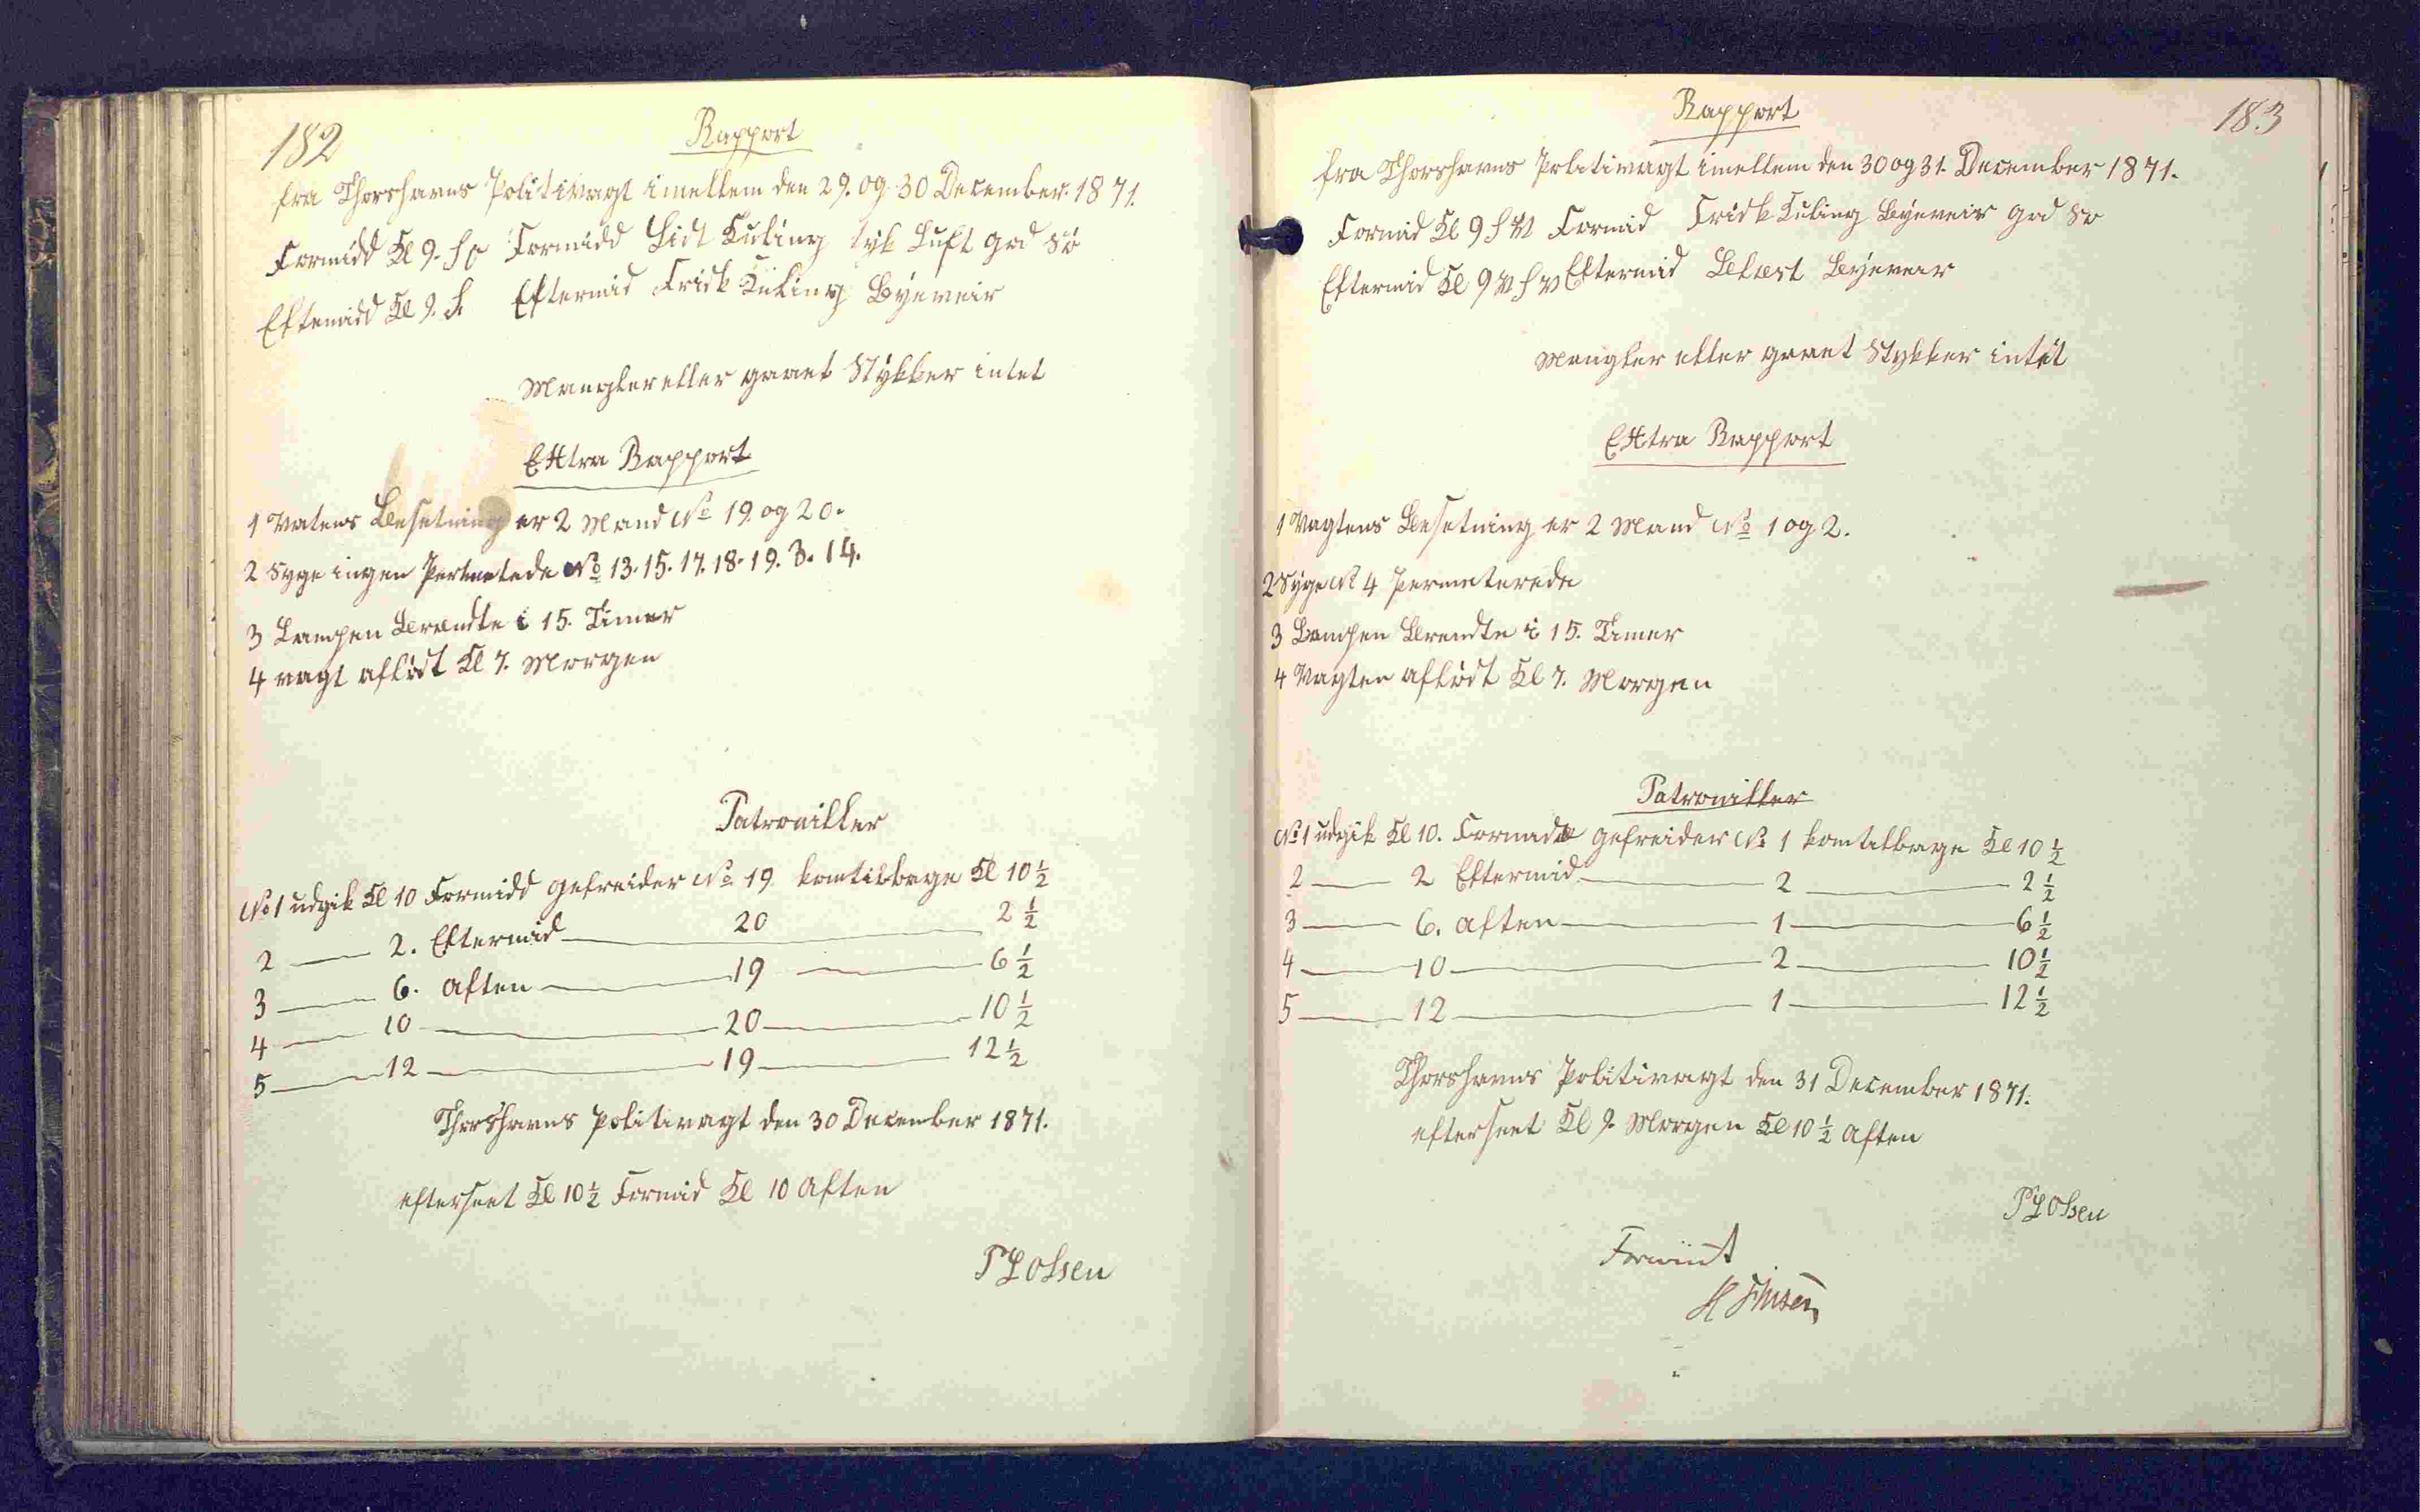 182
Rapport
fra Thorshavns Politivagt imellem den 29. og 30 December 1871.
Formidd Kl 9. SO Formidd Lidt Kuling tyk Luft god Sö
Eftemidd Kl 9. S. Eftermid Frisk Kuling Byeveir
Mangler eller gaaet Stykker intet
Extra Rapport
1 Vatens Besetning er 2 Mand No 19 og 20.
2 Syge ingen No 13. 15. 17. 18. 19. 3. 14.
3 Lampen Brændte i 15. Timer
4 vagt aflöst Kl 7. Morgen
Patrouiller
No 1 udgik Kl 10 Formidd gefreider No 19 kom tilbage Kl 10 1/2
2 — 2. Eftermid — 20 — 2 1/2
3 — 6. Aften — 19 — 6 1/2
4 — 10 — 20 — 10 1/2
5 — 12 — 19 — 12 1/2
Thorshavns Politivagt den 30 December 1871.
efterseet Kl 10 1/2 Formid Kl 10 Aften
P L Olsen
183
Rapport
fra Thorshavns Politivagt imellem den 30 og 31. December 1871.
Formid Kl 9 Formid Frisk Kuling Byeveir god Sö
Eftermid Kl 9 VSV Eftermid Blæst Byeveir
Mangler eller gaaet Stykker intet
Extra Rapport
1 Vagtens Besetning er 2 Mand No 1 og 2.
2 Syge No 4 Permeterede
3 Lampen Brendte i 15. Timer
4 Vagten aflöst Kl 7. Morgen
Patrouiller
No 1 udgik Kl 10. Formid gefreider No 1 kom tilbage Kl 10 1/2
2 — 2 Eftermid — 2 — 2 1/2
3 — 6. Aften — 1 — 6 1/2
4 — 10 — 2 — 10 1/2
5 — 12 — 1 — 12 1/2
Thorshavns Politivagt den 31 December 1871.
efterseet Kl 9. Morgen Kl 10 1/2 Aften
P L Olsen
Forevist